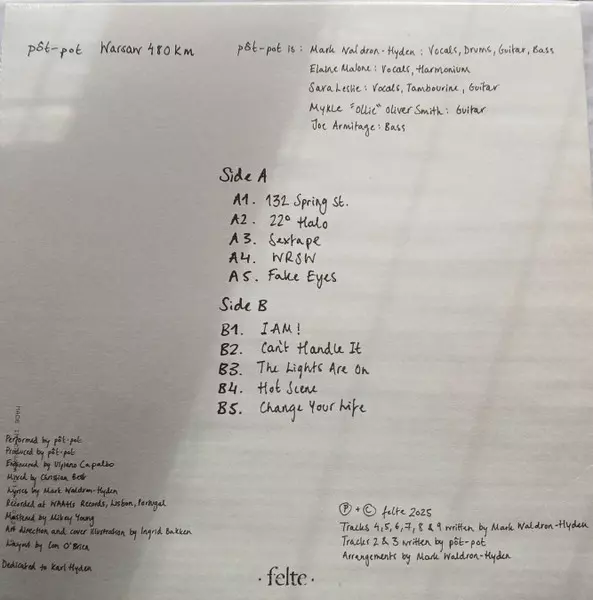 pôt-pot Warsaw 480km
pôt-pot is: Mark Waldron-Hyden: Vocals, Drums, Guitar, Bass
Elaine Malone: Vocals, Harmonium
Sara Leslie: Vocals, Tambourine, Guitar
Mykle "Ollie" Oliver Smith: Guitar
Joe Armitage: Bass
Side A
A1. 132 Spring St.
A2. 22° Halo
A3. Sextape
A4. WRSW
A5. Fake Eyes
Side B
B1. I AM!
B2. Can't Handle It
B3. The Lights Are On
B4. Hot Scene
B5. Change Your Life
MADE
Performed by pôt-pot
Produced by pôt-pot
Engineered by Capalbo
Mixed by Christian Best
Lyrics by Mark Waldron-Hyden
Recorded at Records, Lisbon, Portugal
Mastered by Mikey Young
Art direction and cover illustration by Ingrid Bakken
Layout by O'Brien
Dedicated to Karl Hyden
℗ + © felte 2025
Tracks 4, 5, 6, 7, 8 & 9 written by Mark Waldron-Hyden
Tracks 2 & 3 written by pôt-pot
Arrangements by Mark Waldron-Hyden
· felte ·